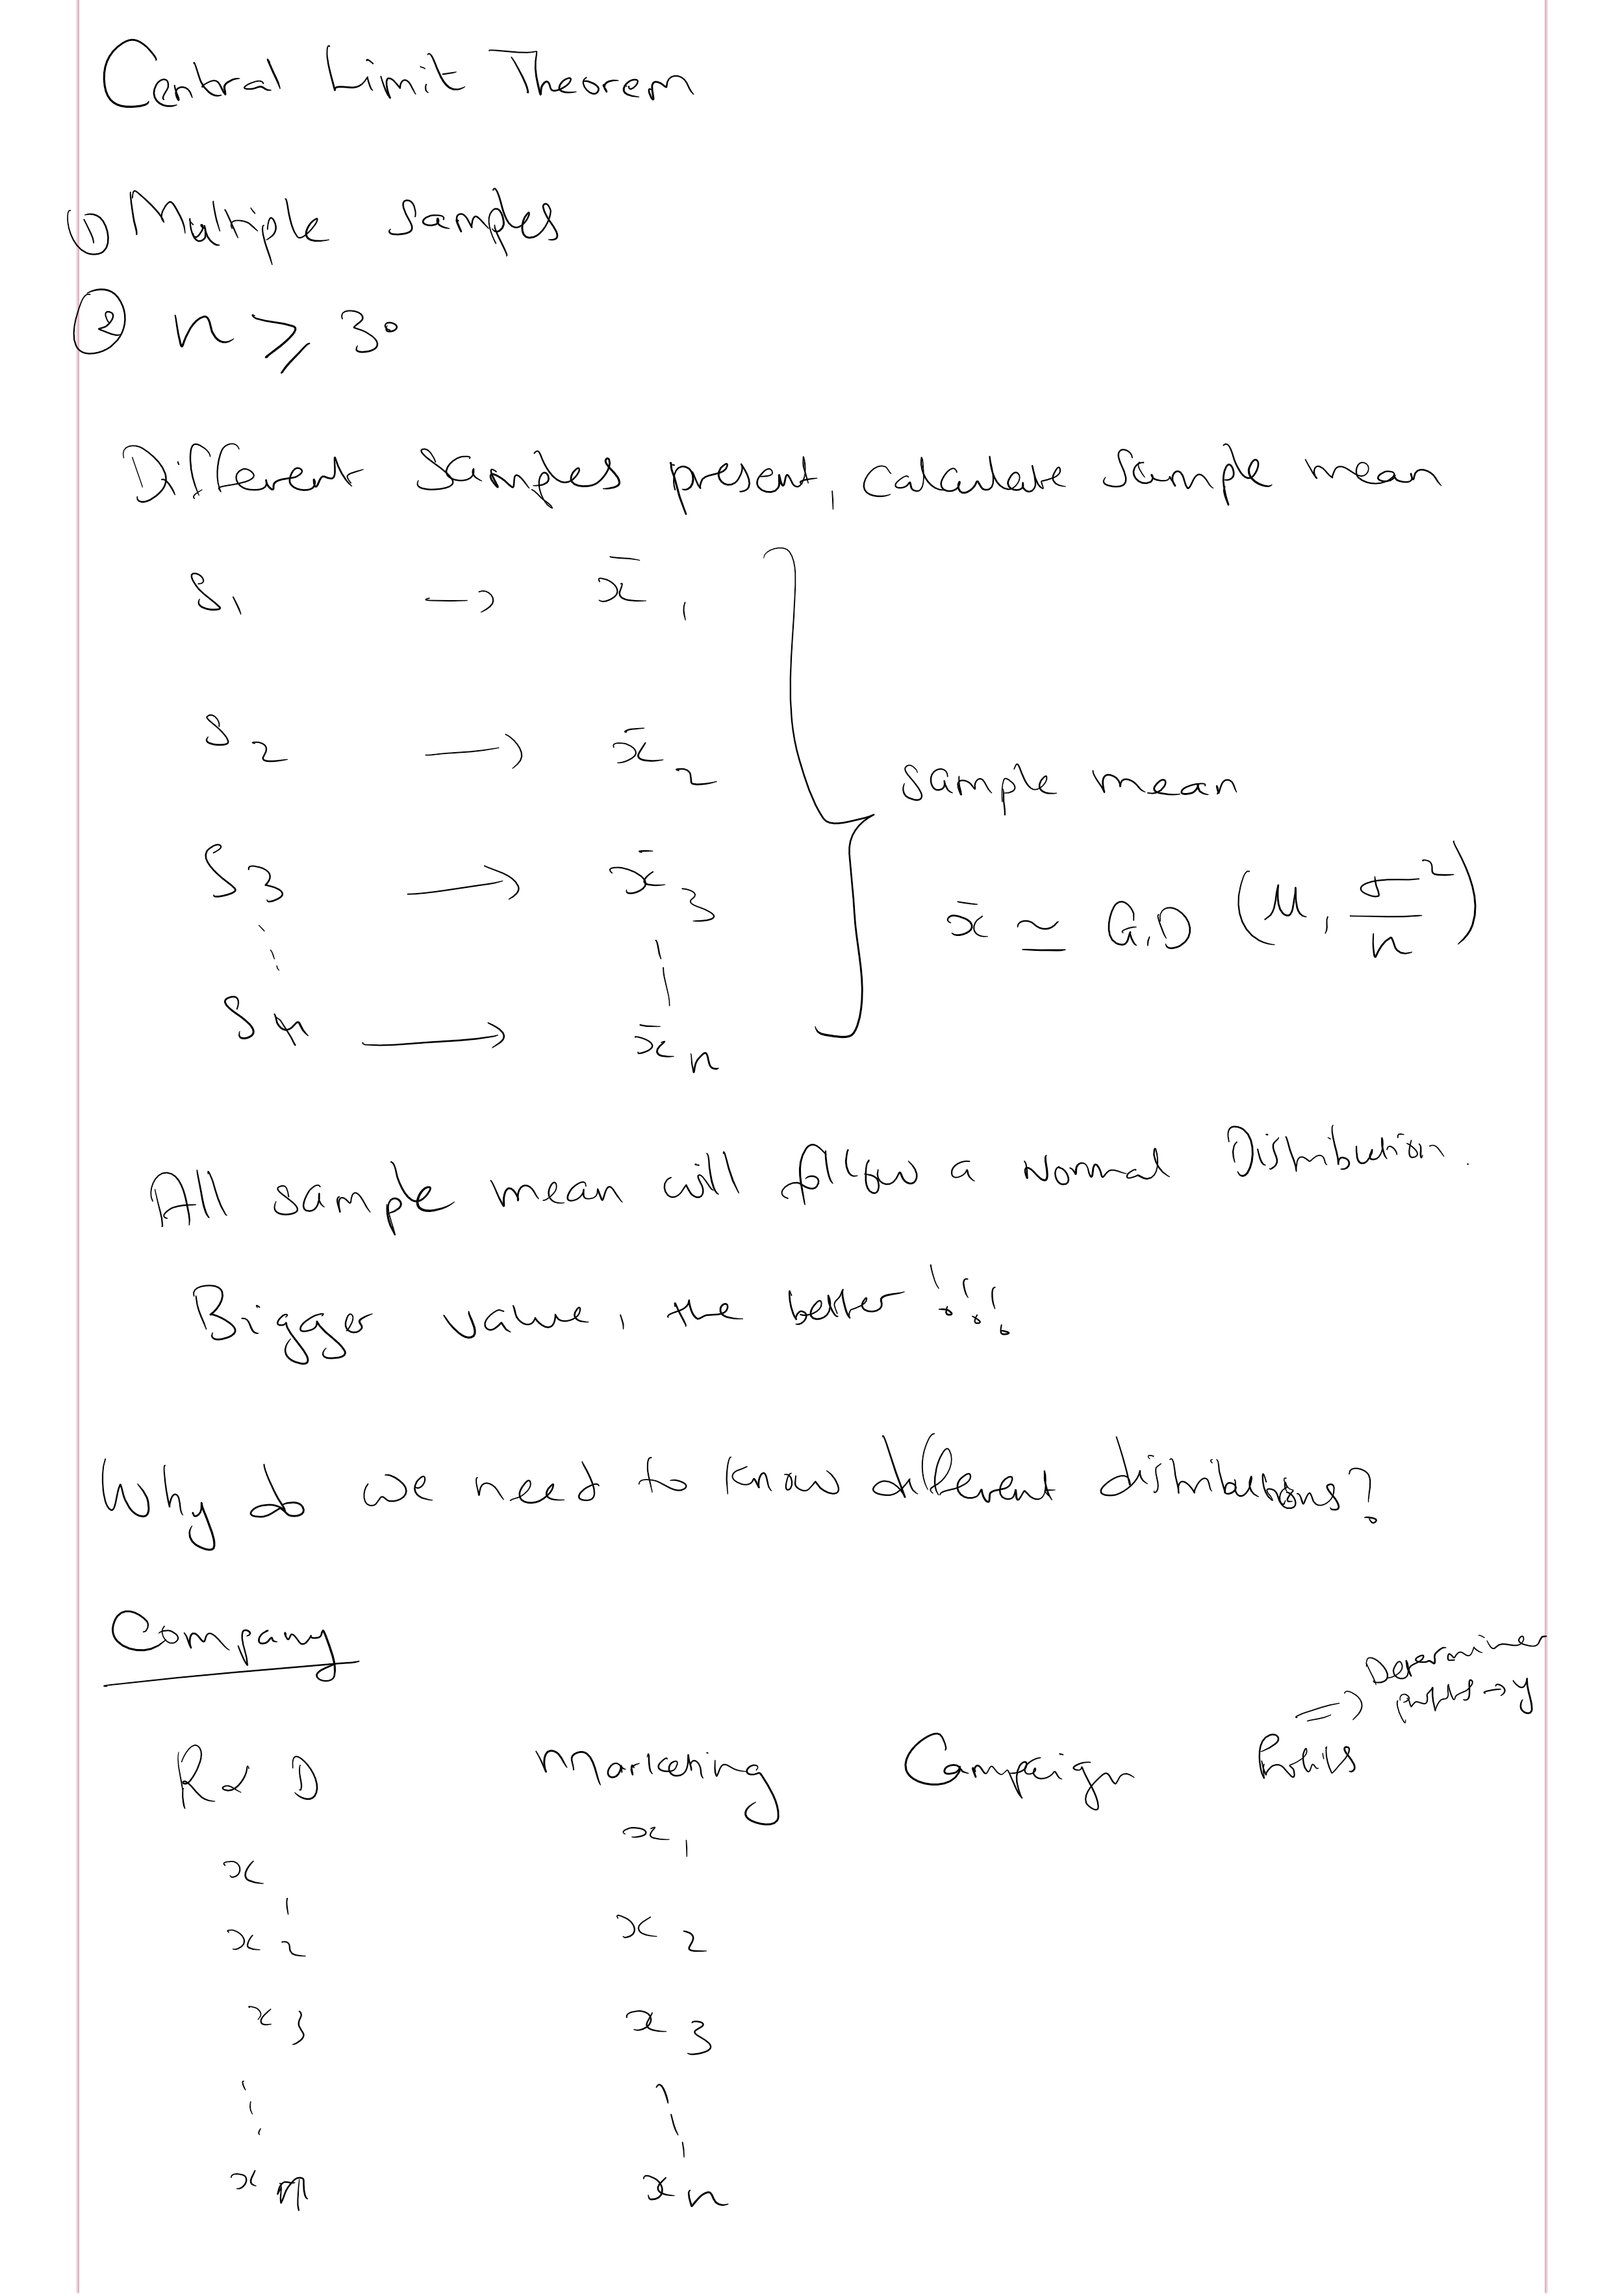 Central Limit Theorem
① Multiple Samples
② n ⩾ 30
Different Samples present, calculate Sample mean
S₁ → x̄₁
S₂ → x̄₂
sample mean
S₃ → x̄₃
x̄ ≃ G.D (μ, σ²/n)
Sₙ → x̄ₙ
All sample mean will follow a Normal Distribution.
Bigger value, the better !!!
Why do we need to know different distributions?
Company
⇒ Determine
profits → y
R & D Marketing Campaign Profits
x₁ x₁
x₂ x₂
x₃ x₃
xₙ xₙ